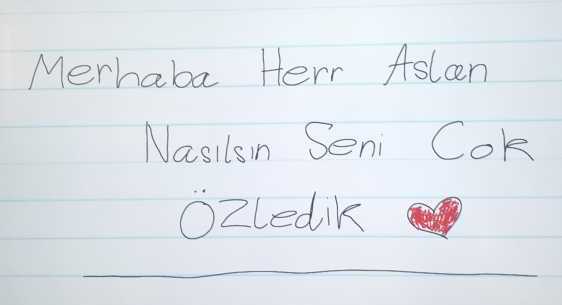 Merhaba Herr Aslan
Nasılsın Seni Cok
Özledik